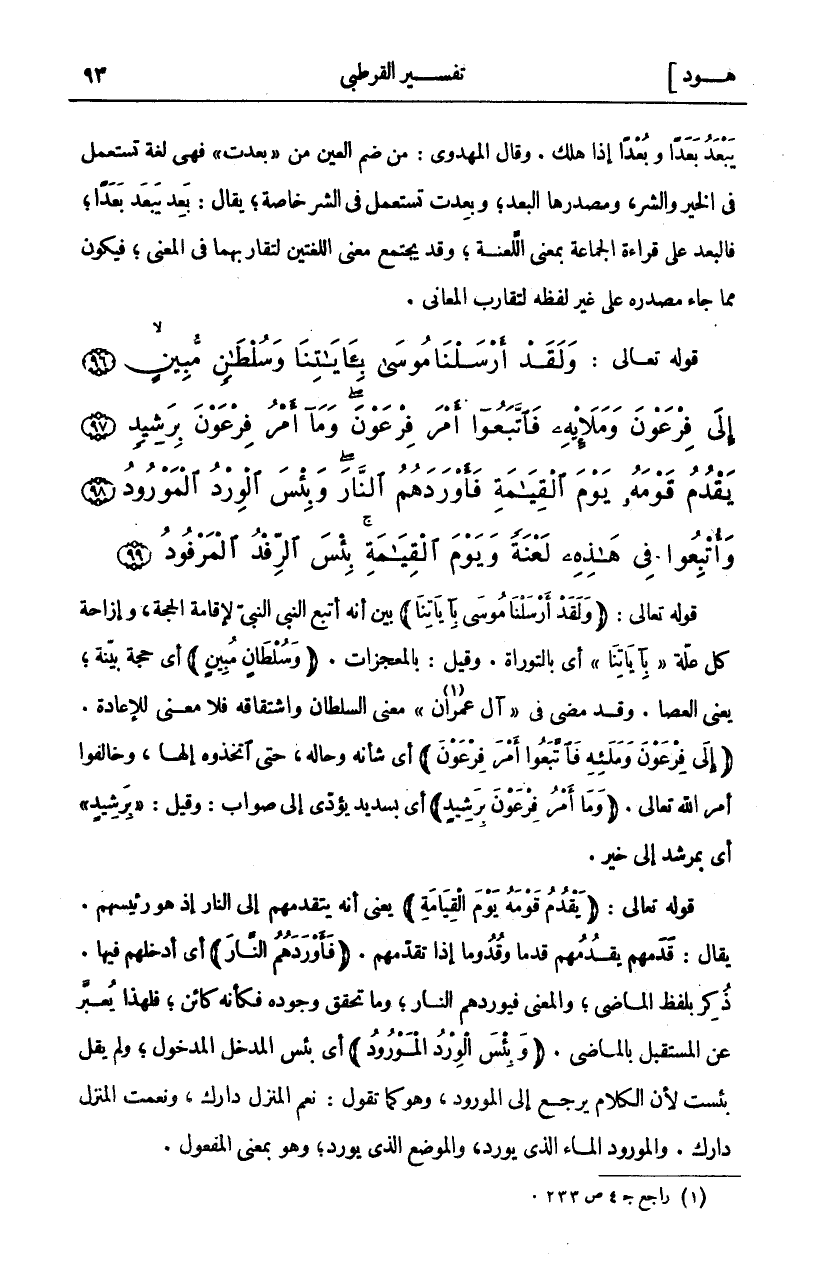 هـــود ] تفســـير القرطبى ٩٣
يَبْعَدُ بَعَدًا و بُعْدًا إذا هلك . وقال المهدوى : من ضم العين من «بعدت» فهى لغة تستعمل
فى الخير والشر، ومصدرها البعد؛ وبعِدت تستعمل فى الشر خاصة؛ يقال : بَعِد يَبْعَد بَعَدًا؛
فالبعد على قراءة الجماعة بمعنى اللّعنــة ؛ وقد يجتمع معنى اللغتين لتقاربهما فى المعنى ؛ فيكون
مما جاء مصدره على غير لفظه لتقارب المعانى .
قوله تعـالى : وَلَقَدْ أَرْسَلْنَا مُوسَىٰ بِـَٔايَـٰتِنَا وَسُلْطَـٰنٍ مُّبِينٍ ۙ ﴿٩٦﴾
إِلَىٰ فِرْعَوْنَ وَمَلَإِي۟هِۦ فَٱتَّبَعُوٓا۟ أَمْرَ فِرْعَوْنَ ۖ وَمَآ أَمْرُ فِرْعَوْنَ بِرَشِيدٍ ﴿٩٧﴾
يَقْدُمُ قَوْمَهُۥ يَوْمَ ٱلْقِيَـٰمَةِ فَأَوْرَدَهُمُ ٱلنَّارَ ۖ وَبِئْسَ ٱلْوِرْدُ ٱلْمَوْرُودُ ﴿٩٨﴾
وَأُتْبِعُوا۟ فِى هَـٰذِهِۦ لَعْنَةً وَيَوْمَ ٱلْقِيَـٰمَةِ ۚ بِئْسَ ٱلرِّفْدُ ٱلْمَرْفُودُ ﴿٩٩﴾
قوله تعالى : ﴿وَلَقَدْ أَرْسَلْنَا مُوسَى بِآيَاتِنَا﴾ بين أنه أتبع النبى النبىّ لإقامة الحجة، وإزاحة
كل علّة « بِآيَاتِنَا » أى بالتوراة . وقيل : بالمعجزات . ﴿وَسُلْطَانٍ مُبِينٍ﴾ أى حجة بيّنة ؛
يعنى العصا . وقــد مضى فى « آل عمران (١) » معنى السلطان واشتقاقه فلا معــنى للإعادة .
﴿إِلَى فِرْعَوْنَ وَمَلَئِهِ فَاتَّبَعُوا أَمْرَ فِرْعَوْنَ﴾ أى شأنه وحاله، حتى ٱتخذوه إلهـا ، وخالفوا
أمر الله تعالى . ﴿وَمَا أَمْرُ فِرْعَوْنَ بِرَشِيدٍ﴾ أى بسديد يؤدّى إلى صواب : وقيل : «بِرَشِيدٍ»
أى بمرشد إلى خير .
قوله تعالى : ﴿يَقْدُمُ قَوْمَهُ يَوْمَ الْقِيَامَةِ﴾ يعنى أنه يتقدمهم إلى النار إذ هو رئيسهم .
يقال : قَدَمهم يقــدُمُهم قدما وقُدُوما إذا تقدّمهم . ﴿فَأَوْرَدَهُمُ النَّارَ﴾ أى أدخلهم فيها .
ذُكِر بلفظ المـاضى ؛ والمعنى فيوردهم النــار ؛ وما تحقق وجوده فكأنه كائن ؛ فلهذا يُعــبَّر
عن المستقبل بالمـاضى . ﴿وَبِئْسَ الْوِرْدُ الْمَوْرُودُ﴾ أى بئس المدخل المدخول ؛ ولم يقل
بئست لأن الكلام يرجــع إلى المورود ، وهو كما تقول : نعم المنزل دارك ، ونعمت المنزل
دارك . والمورود المـاء الذى يورد، والموضع الذى يورد؛ وهو بمعنى المفعول .
(١) راجع جـ ٤ ص ٢٣٣ .